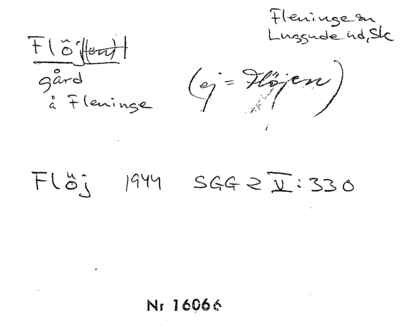 Fleninge sn
Luggude hd, Sk
Flöj
gård
å Fleninge
(ej = Flöjen)
Flöj 1944 SGG 2 V: 330
Nr 16066